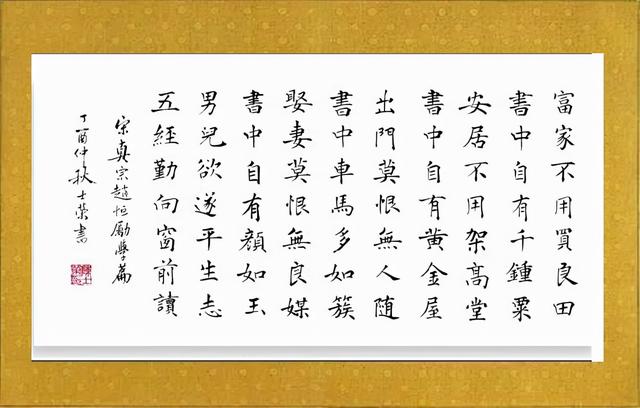 富家不用買良田
書中自有千鍾粟
安居不用架高堂
書中自有黄金屋
出門莫恨無人隨
書中車馬多如簇
娶妻莫恨無良媒
書中自有顔如玉
男兒欲遂平生志
五經勤向窗前讀
宋真宗趙恒勵學篇
丁酉仲秋士榮書